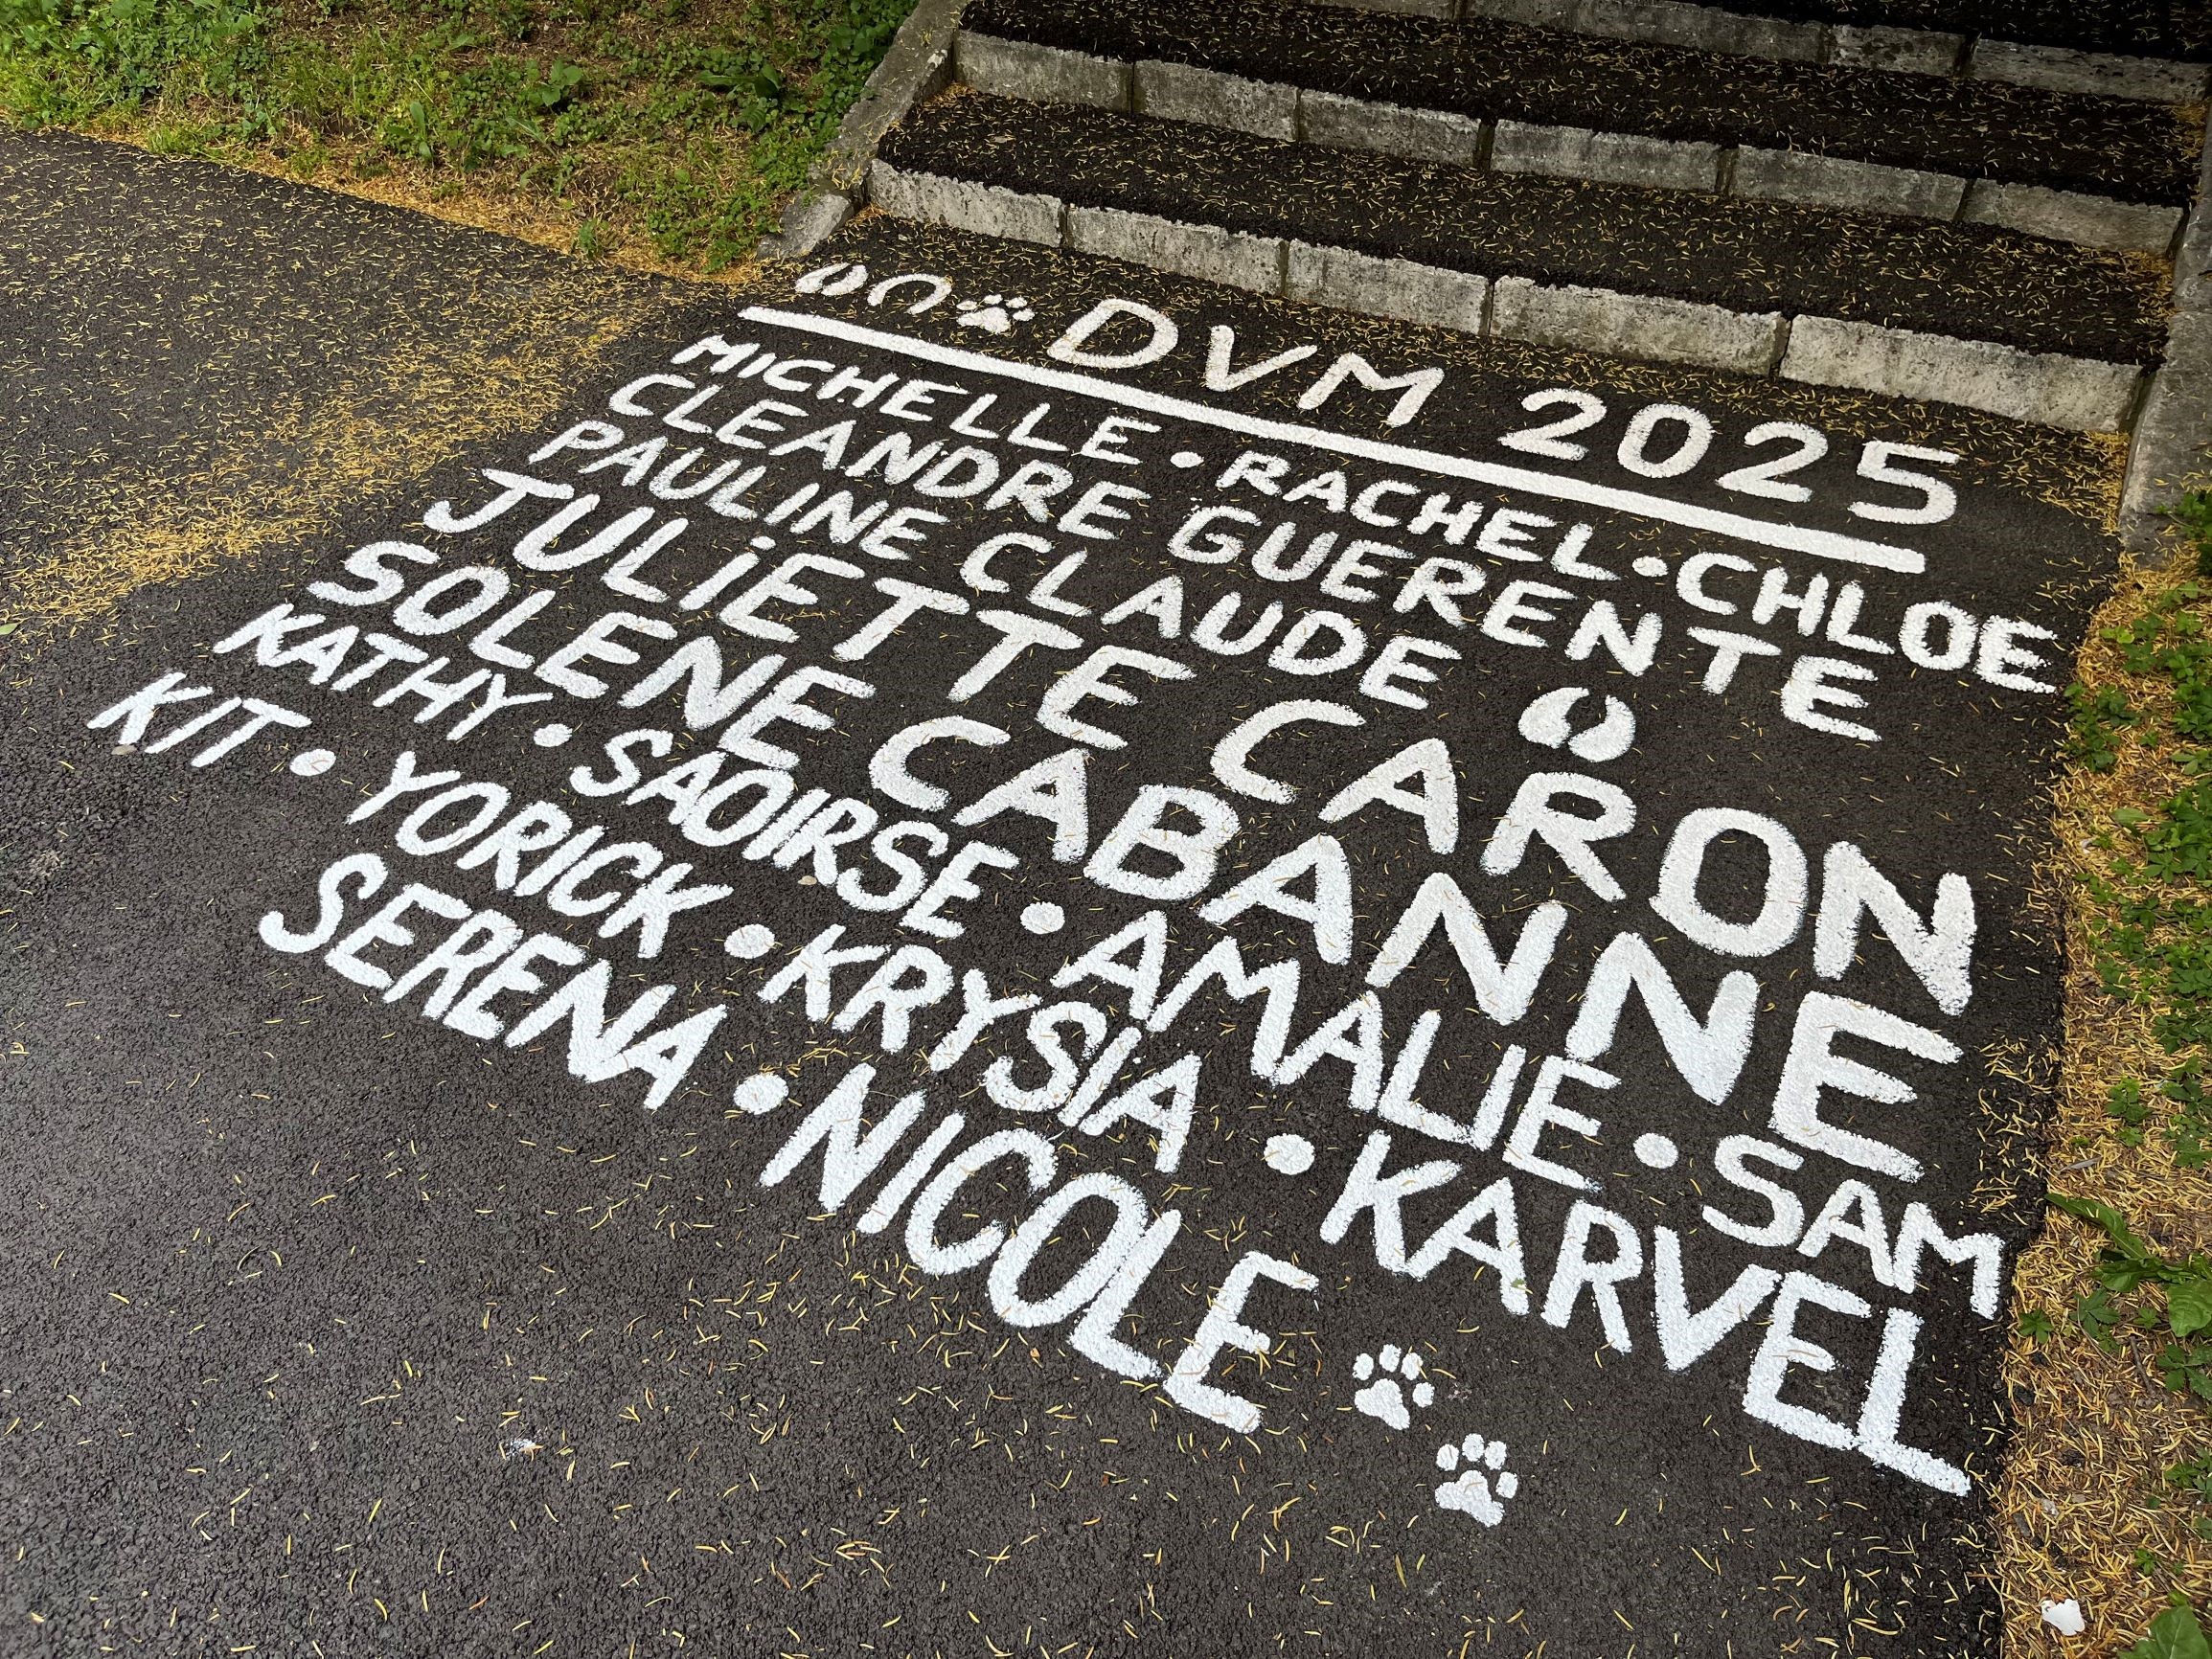 DVM 2025
MICHELLE • RACHEL • CHLOE
CLEANDRE GUERENTE
PAULINE CLAUDE
JULiETTE CARON
SOLENE CABANNE
KATHY • SAOIRSE • AMALIE • SAM
KIT • YORICK • KRYSIA • KARVEL
SERENA • NICOLE